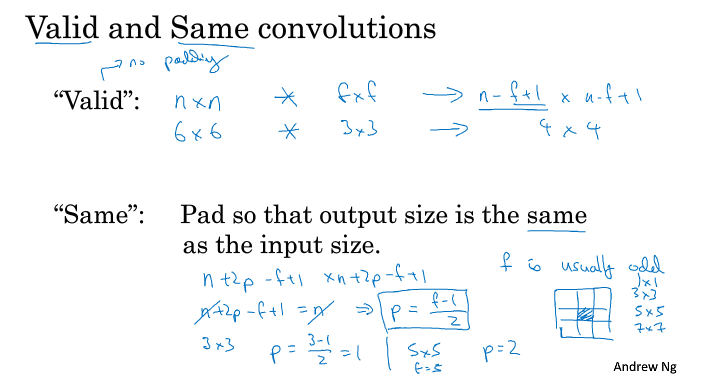 Valid and Same convolutions
→ no padding
"Valid": n×n * f×f → n-f+1 × n-f+1
6×6 * 3×3 → 4 × 4
"Same": Pad so that output size is the same
as the input size.
n+2p-f+1 × n+2p-f+1
n+2p-f+1 = n ⇒ p = f-1/2
3×3 p = 3-1/2 = 1 | 5×5 p=2
f=5
f is usually odd
1×1
3×3
5×5
7×7
Andrew Ng